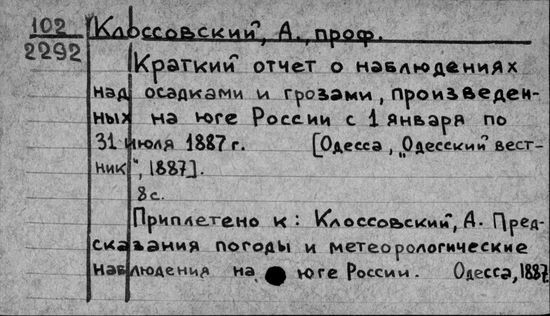 102 Клоссовский, А., проф.
2292
Краткий отчет о наблюдениях
над осадками и грозами, произведен-
ных на юге России с 1 января по
31 июля 1887 г. [Одесса, „Одесский вест-
ник“, 1887].
8 с.
Приплетено к: Клоссовский, А. Пред-
сказания погоды и метеорологические
наблюдения на юге России. Одесса, 1887